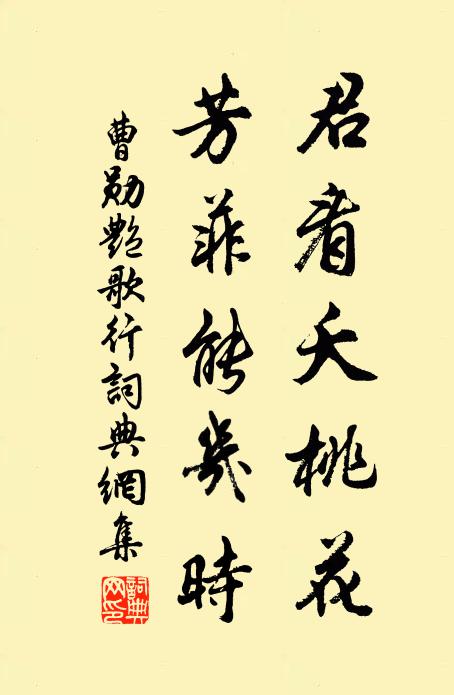 君看夭桃花
芳菲能幾時
曹勛艷歌行詞典網集
詞典網印